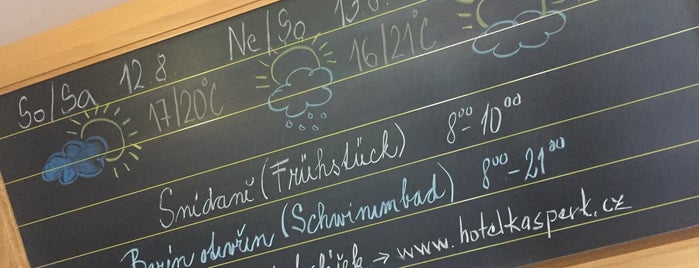 So/Sa 12.8. Ne/So 13.8.
17/20°C 16/21°C
Snídaně (Frühstück) 8⁰⁰-10⁰⁰
Bazén otevřen (Schwimmbad) 8⁰⁰-21⁰⁰
→ www.hotelkasperk.cz